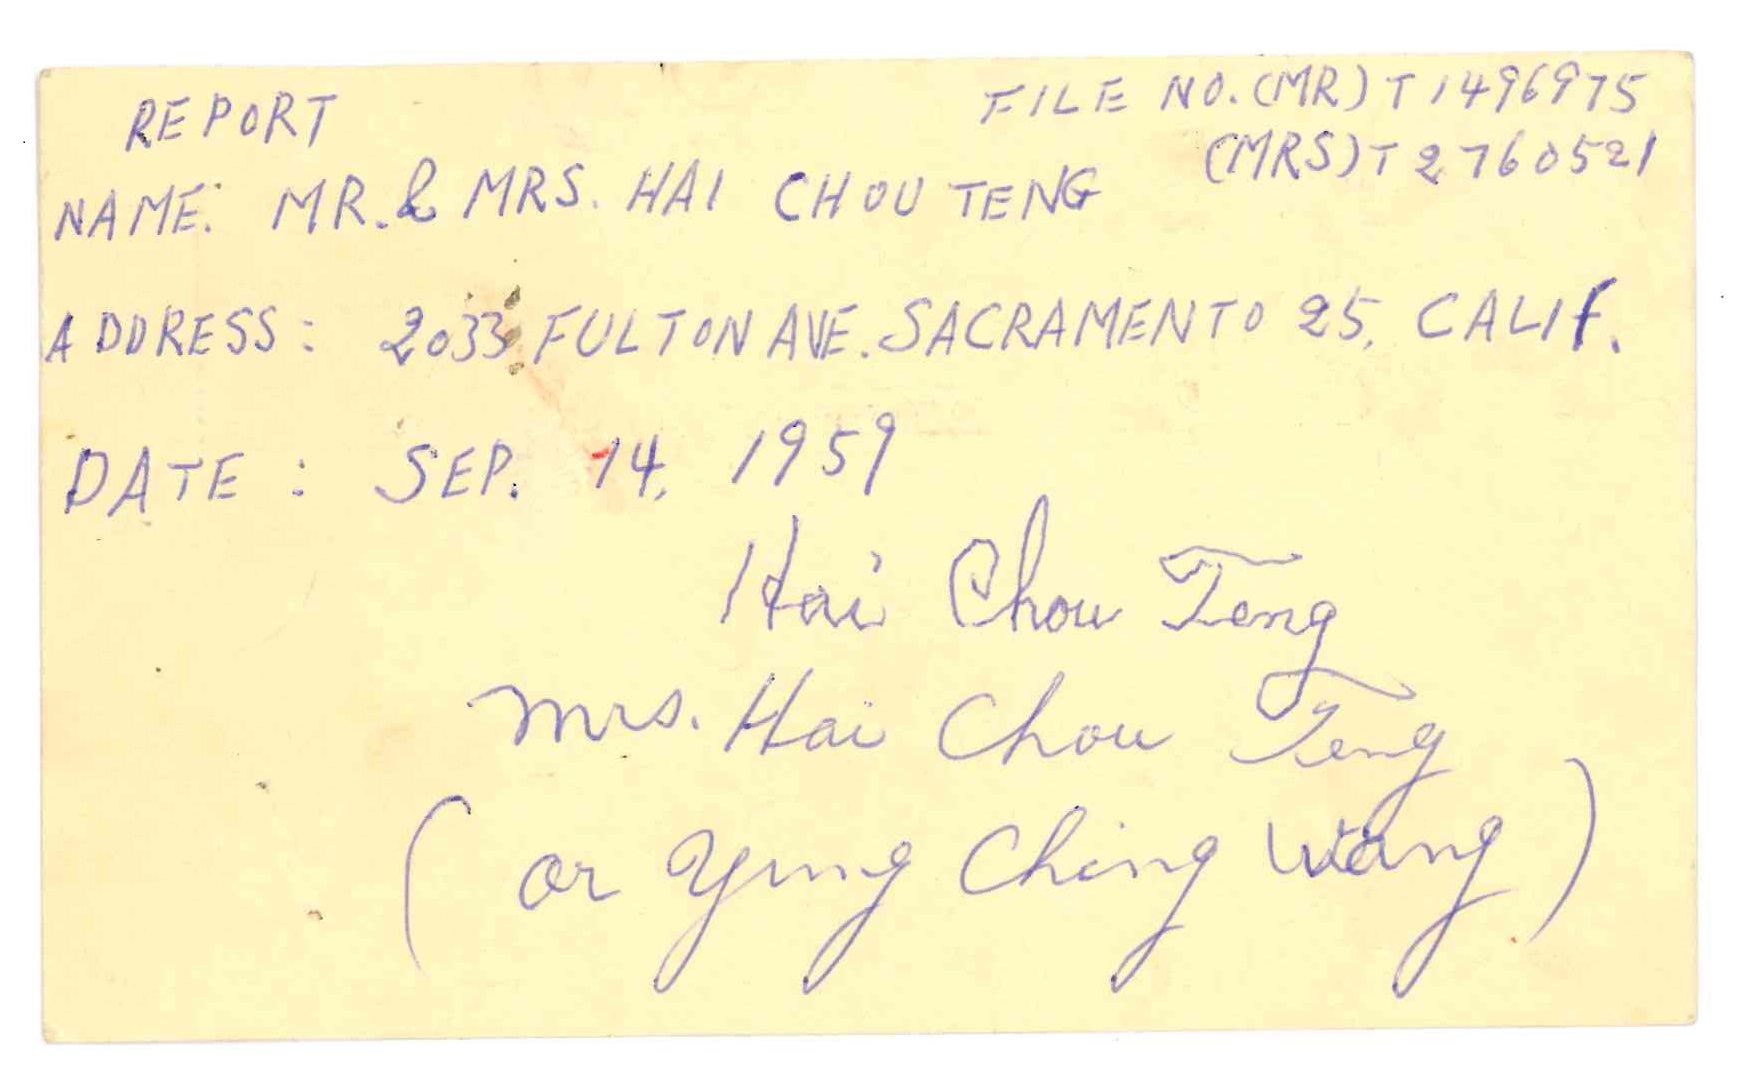 REPORT
FILE NO. (MR) T 1496975
(MRS) T 2760521
NAME: MR. & MRS. HAI CHOU TENG
ADDRESS: 2033 FULTON AVE. SACRAMENTO 25, CALIf.
DATE: SEP. 14, 1959
Hai Chou Teng
Mrs. Hai Chou Teng
(or Yung Ching Wang)